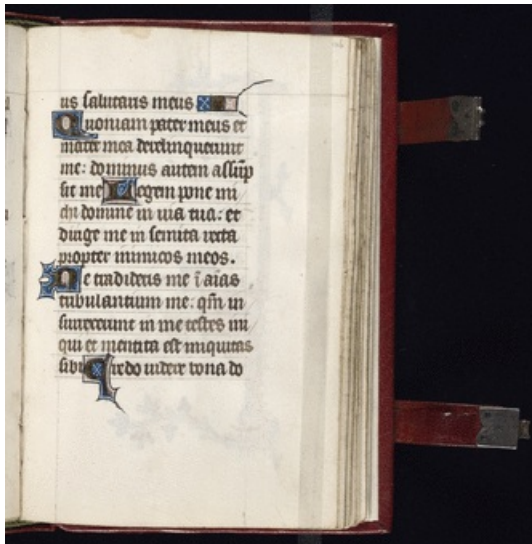 us salutaris meus
Quoniam pater meus et
mater mea derelinquerunt
me: dominus autem assūp
sit me Legem pone mi
chi domine in via tua: et
dirige me in semita recta
propter inimicos meos.
Ne tradideris me ī aīas
tribulantium me: qm̄ in
surrexerunt in me testes ini
qui et mentita est iniquitas
sibi Credo videre bona do